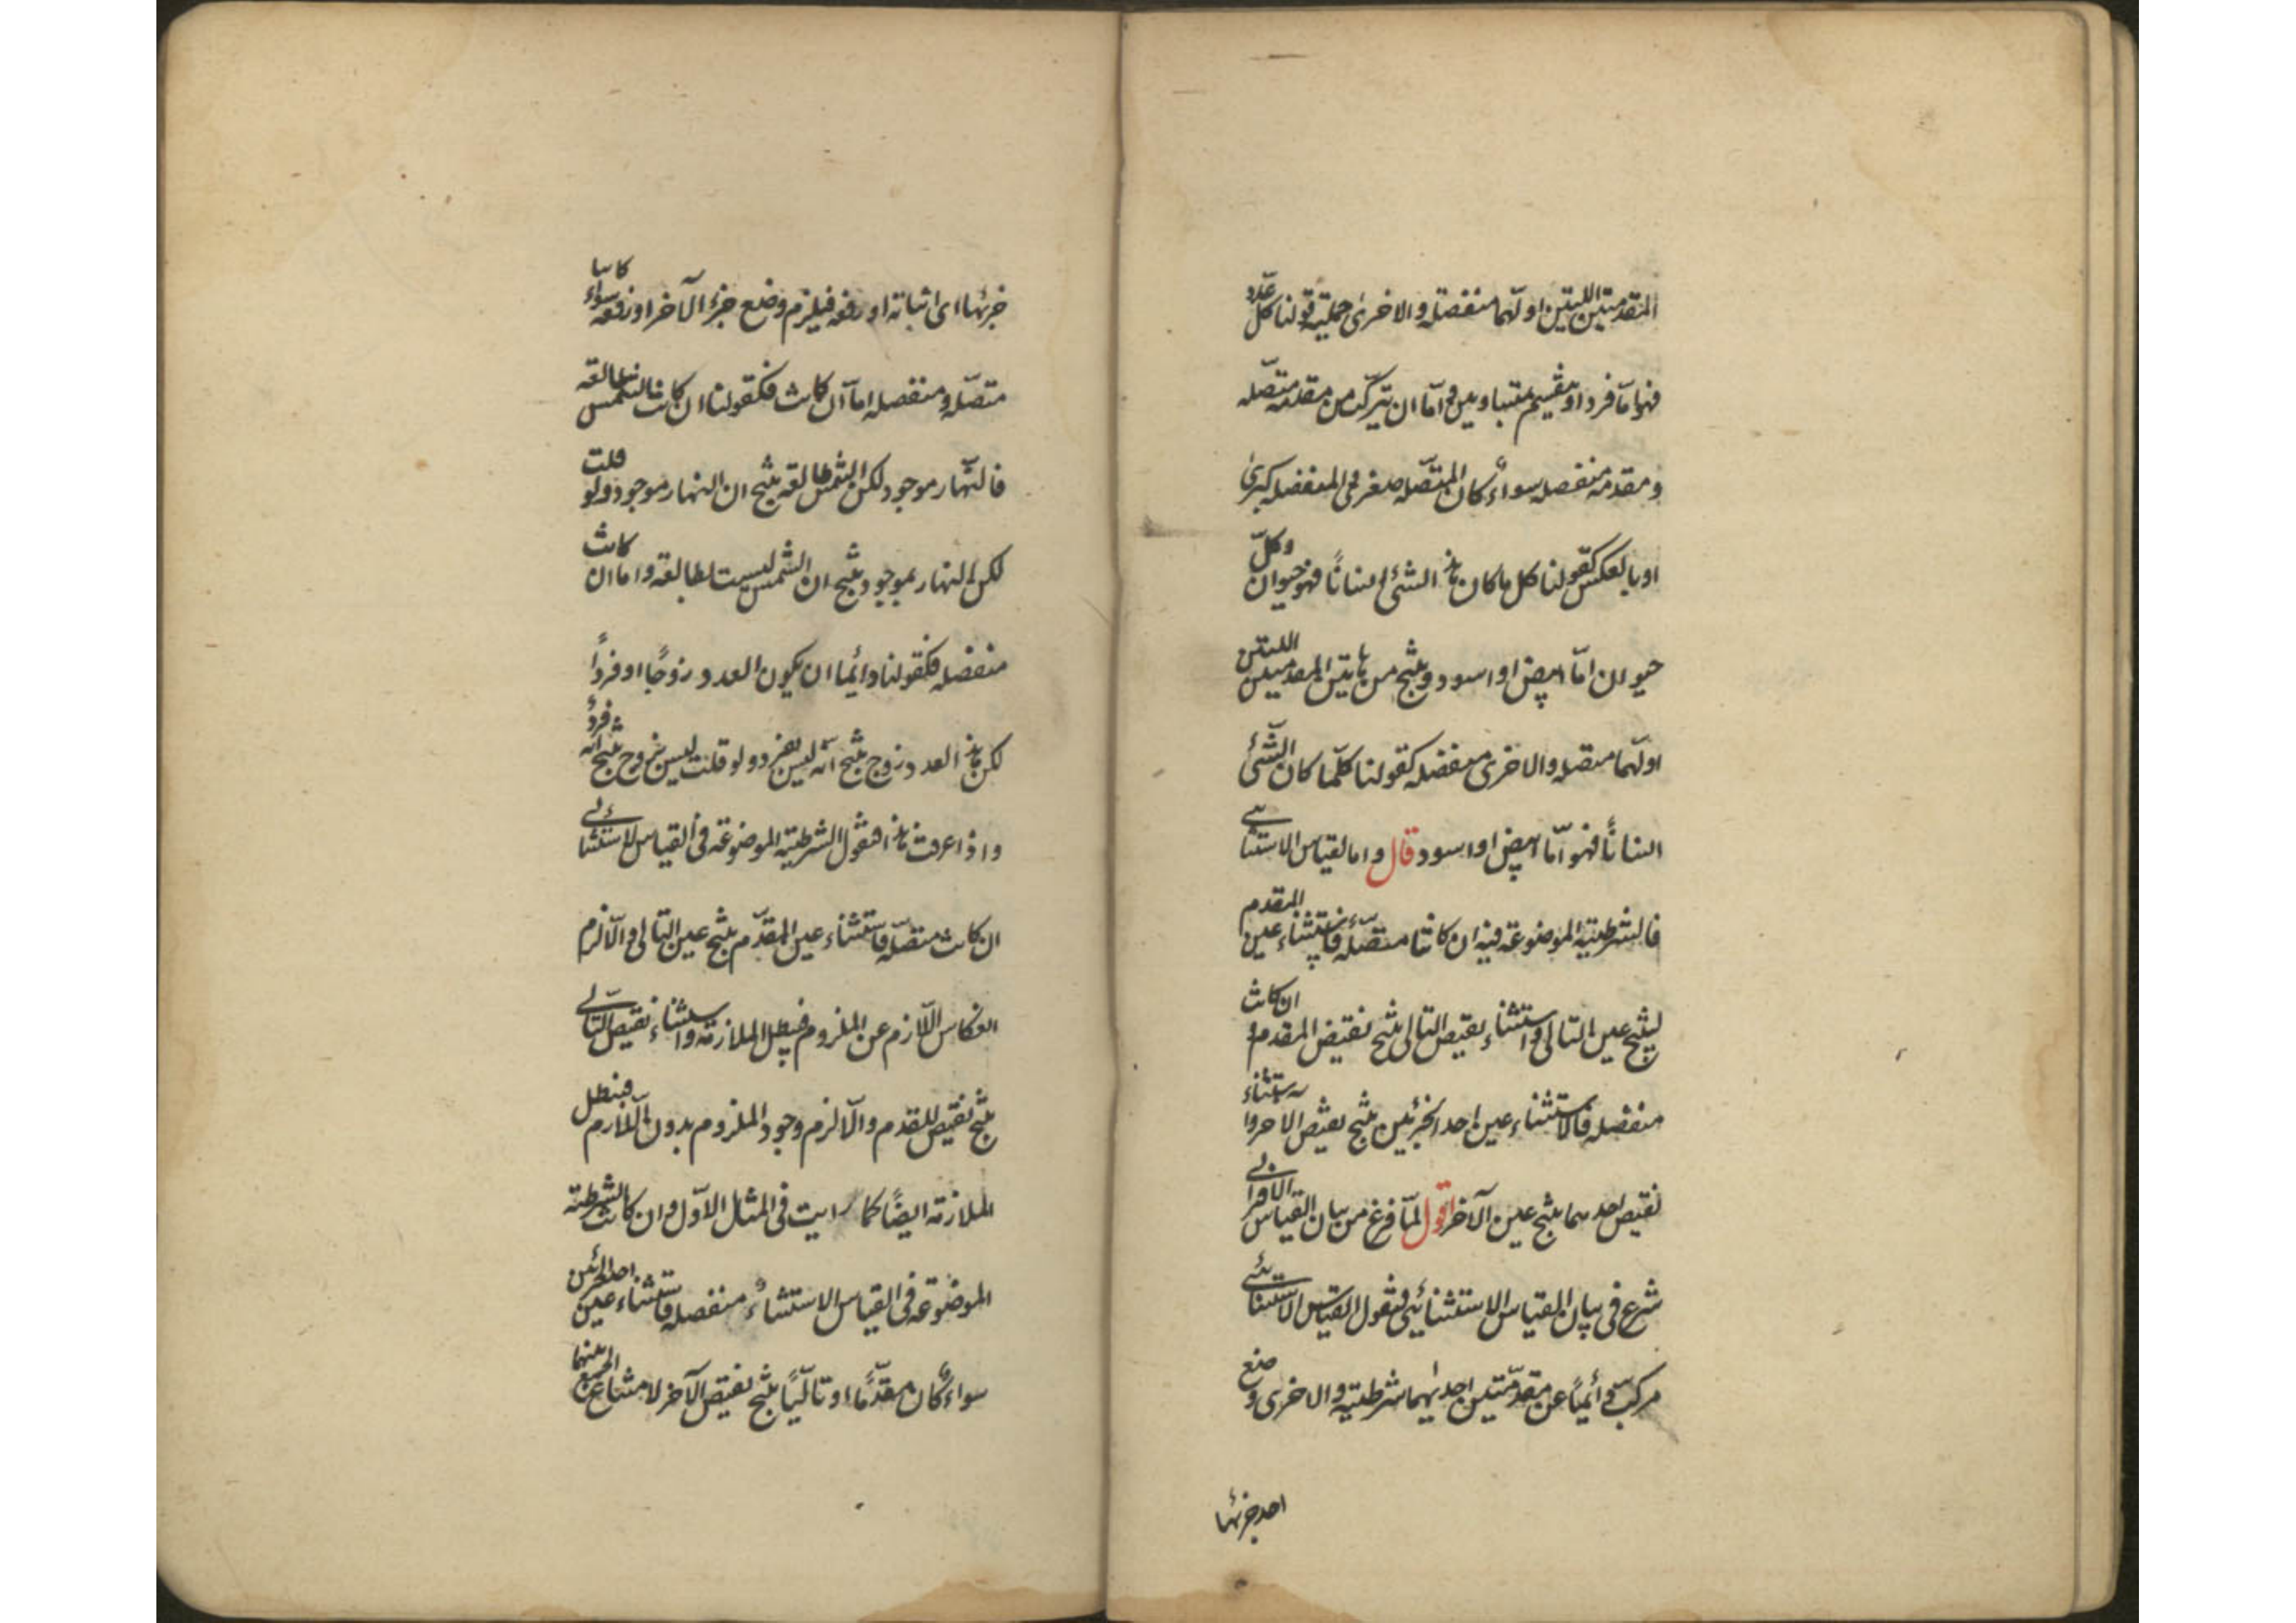 المقدمتين اللتين اولٰهما منفصلة والاخرى حملية قولنا كل عدد
فهو اما فرد او منقسم بمتساويين و اما ان يتركب من مقدمة متصله
ومقدمة منفصله سواء كان المتصله صغرى والمنفصله كبرى
او بالعكس كقولنا كل ما كان هذا الشئ انسانًا فهو حيوان وكل
حيوان اما ابيض او اسود وينتج من هاتين المقدمتين اللتين
اولٰهما متصله والاخرى منفصله كقولنا كلما كان الشئ
انسانًا فهو اما ابيض او اسود قال واما القياس الاستثنائي
فالشرطية الموضوعة فيه ان كانت متصله فاستثناء عين المقدم
ينتج عين التالى واستثناء نقيض التالى ينتج نقيض المقدم وان كانت
منفصله فالاستثناء عين احد الجزئين ينتج نقيض الاخر واستثناء
نقيض احدهما ينتج عين الآخر اقول لما فرغ من بيان القياس الاقترانى
شرع فى بيان القياس الاستثنائى فنقول القياس الاستثنائى
مركب دائمًا عن مقدمتين احدٰيهما شرطية والاخرى وضع
احد جزئها
جزئها اى اثباته او رفعه فيلزم وضع جزء الآخر او رفعه سواء كانتا
متصله ومنفصله اما ان كانت فكقولنا ان كانت الشمس طالعة
فالنهار موجود لكن الشمس طالعة ينتج ان النهار موجود ولو قلت
لكن النهار بموجود ينتج ان الشمس ليست بطالعة واما ان كانت
منفصله فكقولنا دائما ان يكون العدد زوجًا او فردًا
لكن هذا العدد زوج ينتج انه ليس بفرد ولو قلت ليس بزوج ينتج انه فردٌ
واذا عرفت هذا فنقول الشرطية الموضوعة فى القياس الاستثنائى
ان كانت متصله فاستثناء عين المقدم ينتج عين التالى والّا لزم
انفكاس اللازم عن الملزوم فيبطل الملازمة واستثناء نقيض التالى
ينتج نقيض المقدم والّا لزم وجود الملزوم بدون اللازم فبطل
الملازمة ايضًا كما رايت فى المثال الاول وان كانت الشرطية
الموضوعة فى القياس الاستثنائى منفصله فاستثناء عين احد الجزئين
سواء كان مقدمًا او تاليًا ينتج نقيض الآخر لامتناع الجمع بينهما